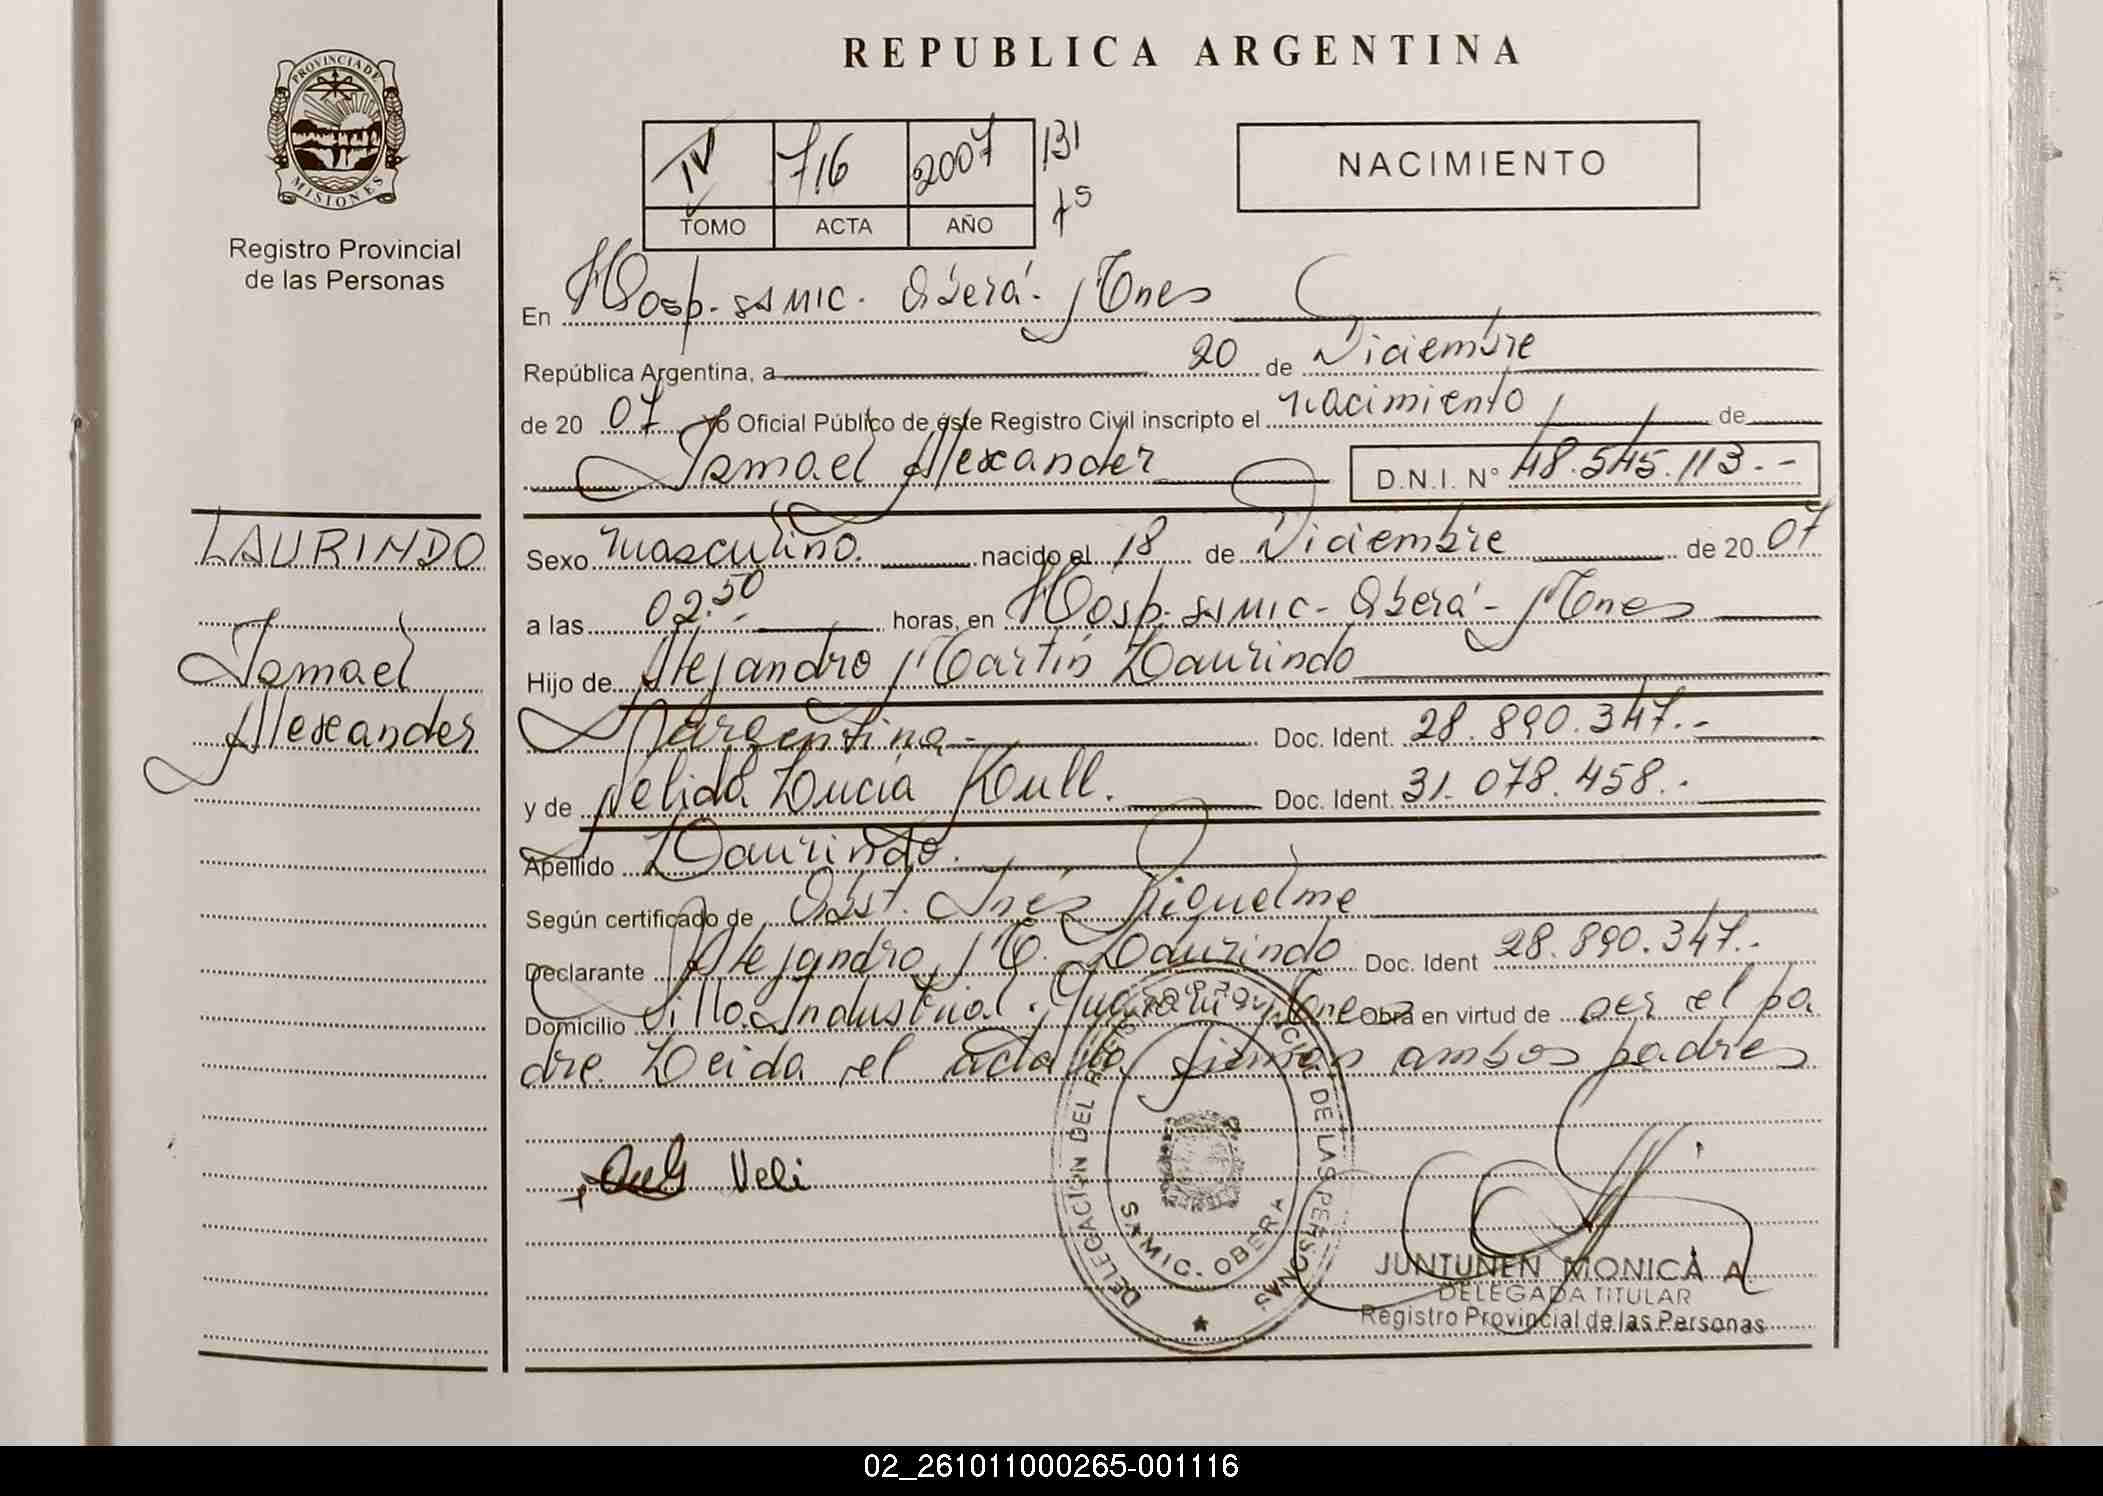 REPUBLICA ARGENTINA
PROVINCIA DE MISIONES
Registro Provincial
de las Personas
IV 716 2007 131
TOMO ACTA AÑO
NACIMIENTO
En Hosp. SAMIC. Oberá - Mnes
República Argentina, a 20 de Diciembre
de 20 07 yo Oficial Público de éste Registro Civil inscripto el nacimiento de
Ismael Alexander D.N.I. N° 48.545.113.-
LAURINDO
Ismael
Alexander
Sexo masculino. nacido el 18 de Diciembre de 20 07
a las 02.50 horas, en Hosp. SAMIC - Oberá - Mnes
Hijo de Alejandro Martín Laurindo
Argentina - Doc. Ident. 28.890.347.-
y de Nelida Lucia Kull. Doc. Ident. 31.078.458.-
Apellido Laurindo.
Según certificado de Obst. Inés Riquelme
Declarante Alejandro M. Laurindo Doc. Ident 28.890.347.-
Domicilio Villa Industrial. Guaraní Mnes Obra en virtud de ser el pa
dre. Leida el acta la firman ambos padres
Neli
DELEGACION DEL REGISTRO PROVINCIAL DE LAS PERSONAS
SAMIC. OBERA
JUNTUNEN MONICA A.
DELEGADA TITULAR
Registro Provincial de las Personas
02_261011000265-001116